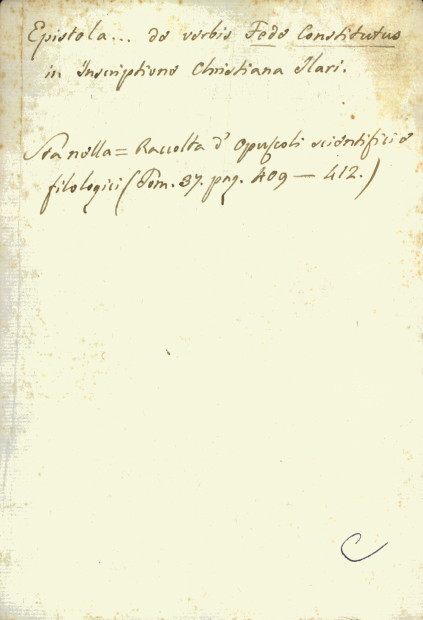 Epistola... de verbis Fede Constitutus
in Inscriptione Christiana Ilari.
Sta nella = Raccolta d' Opuscoli scientifici e
filologici (Tom. 37. pag. 409 — 412.)
C